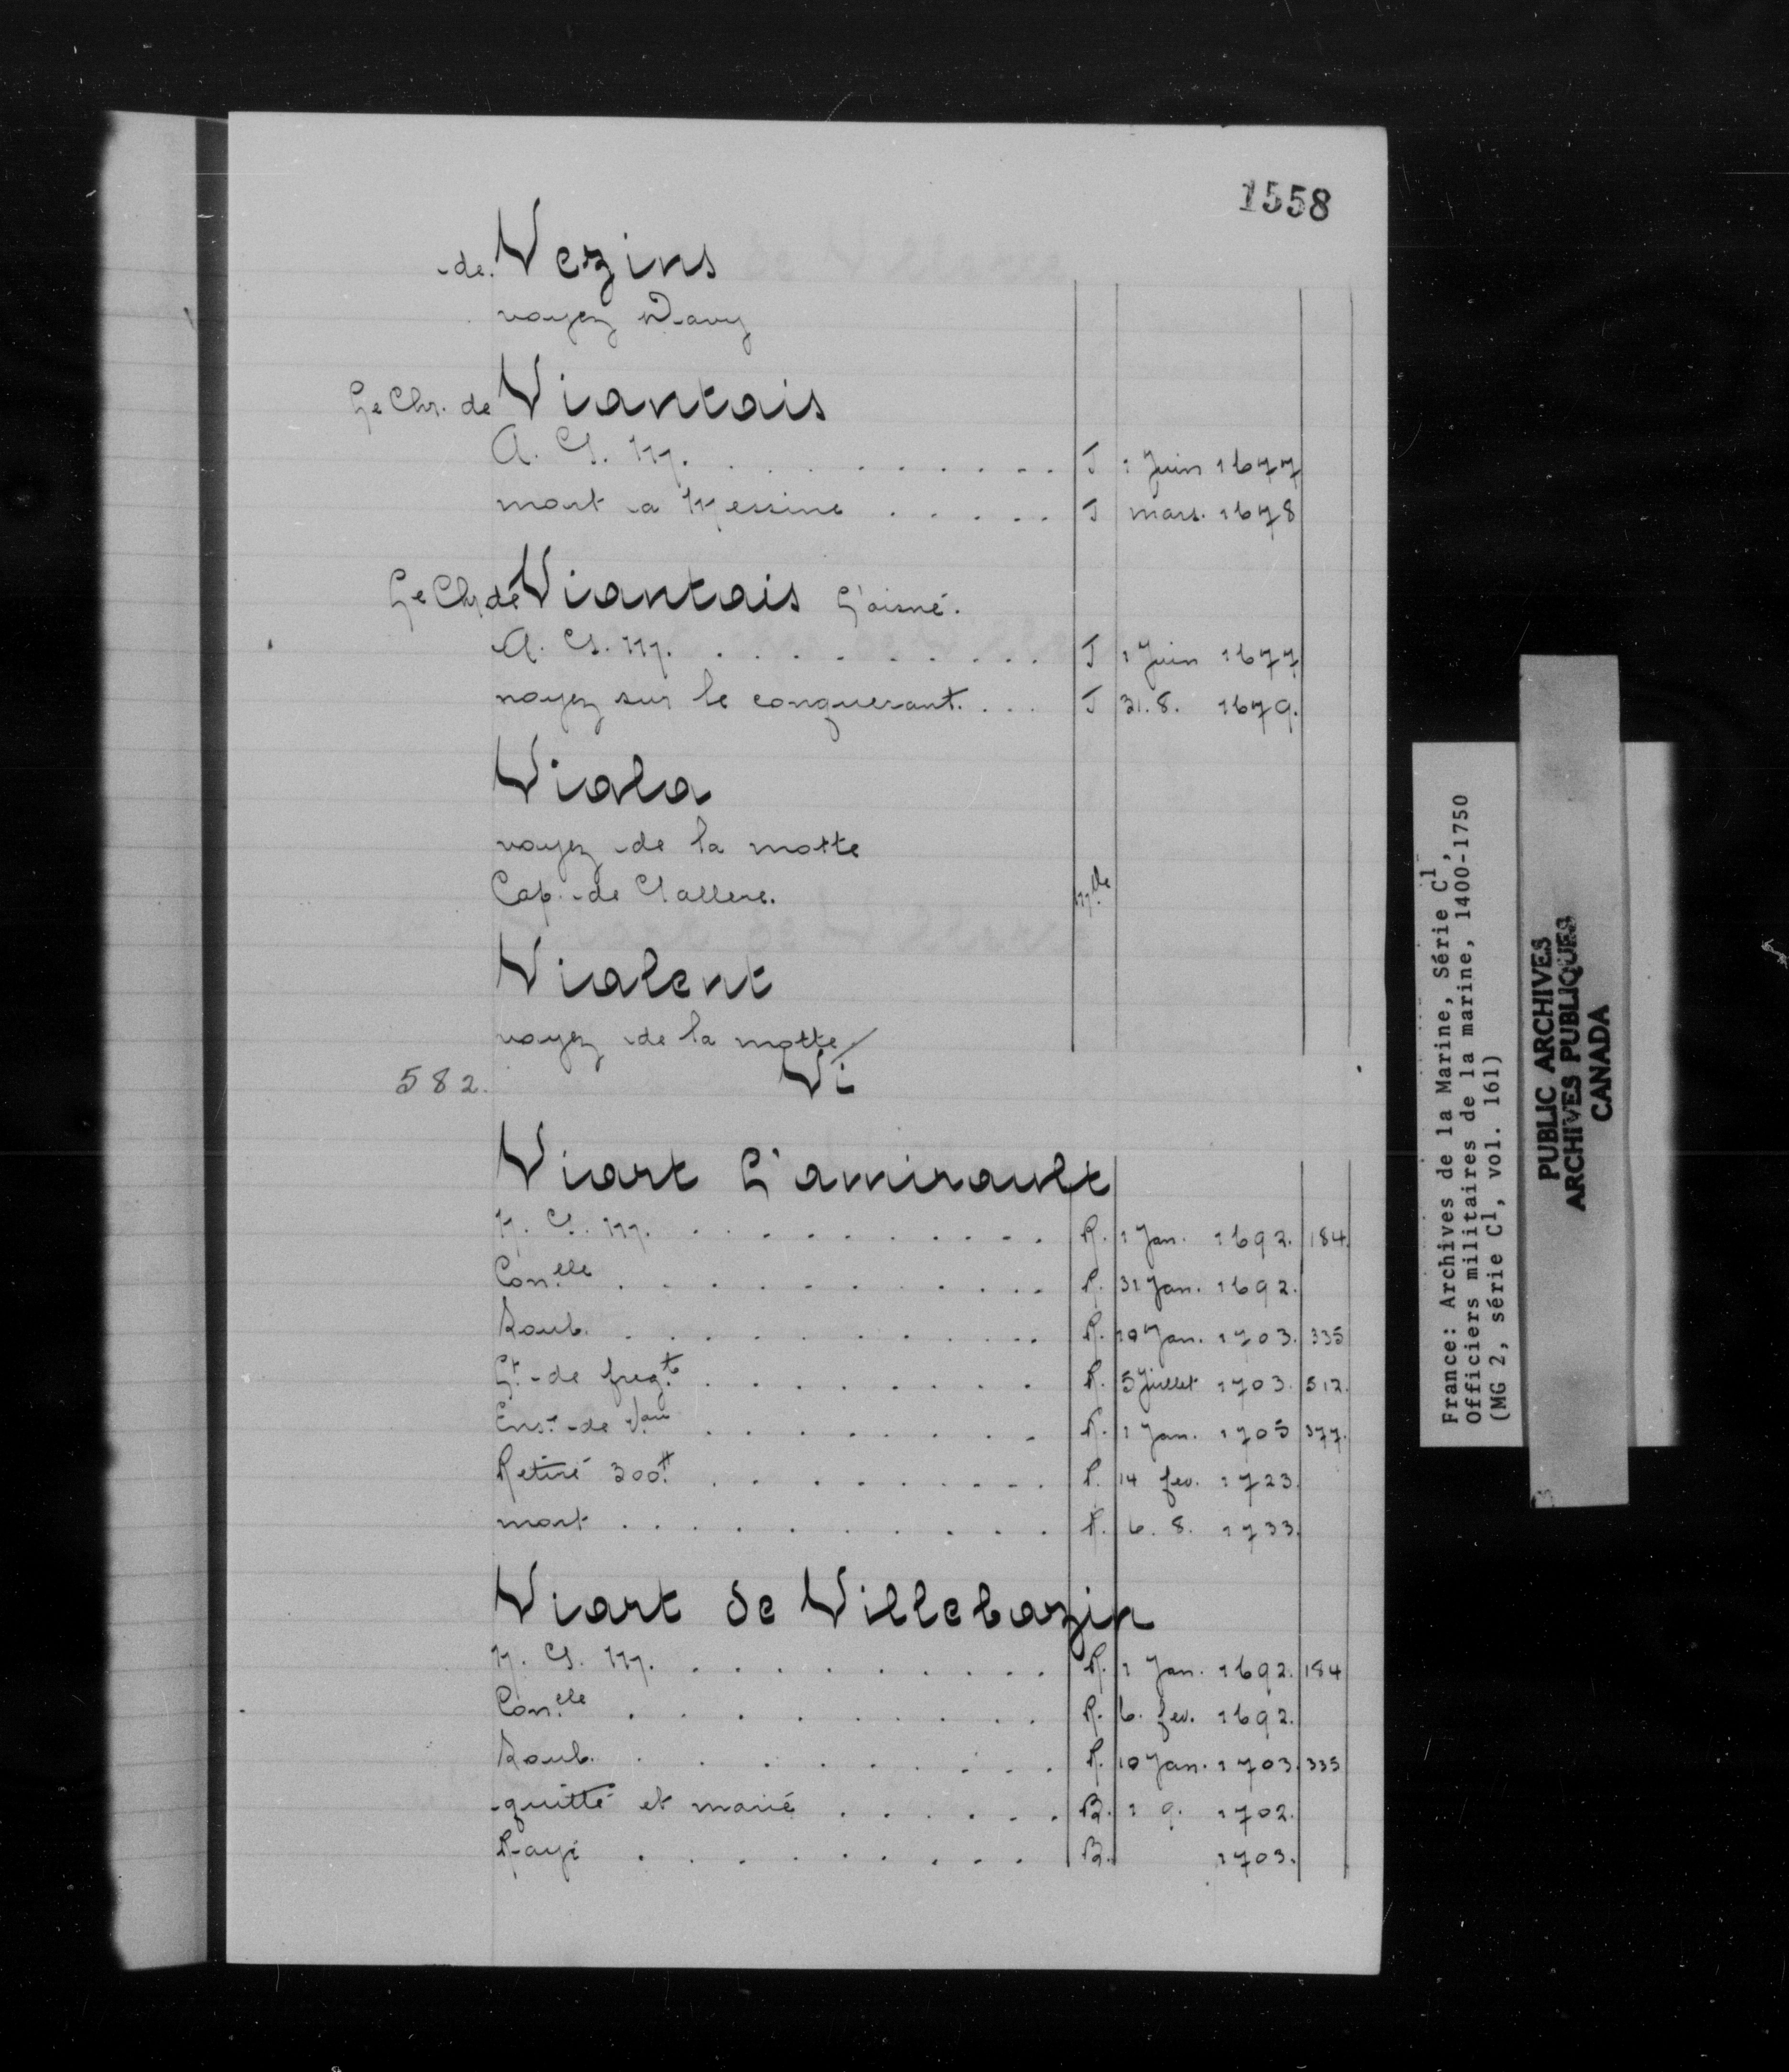 1558
de Vezins
voyez Davy
Le Chr. de Viantais
A. G. M. . . . . . . . . . J 1 Juin 1677
mort a Messine . . . . . J mars. 1678
Le Chr de Viantais L'aisné.
A. G. M. . . . . . . . . . J 1 Juin 1677
noyez sur le conquerant. . . . J 31. 8. 1679.
Viala
voyez de la motte
Cap. de Gallere. M.lle
Vialent
voyez de la motte
582. Vi
Viart L'amirault
N. G. M. . . . . . . . . . R. 1 Jan. 1692. 184.
Con.elle . . . . . . . . . . R. 31 Jan. 1692.
Soub. . . . . . . . . . . R. 10 Jan. 1703. 335
Lt. de freg.te . . . . . . . . R. 5 Juillet 1703. 512.
Ens. de V.au . . . . . . . . R. 1 Jan. 1705 377.
Retiré 300.# . . . . . . . . R. 14 fev. 1723.
mort . . . . . . . . . . . R. 6. 8. 1733.
Viart de Villebazin
N. G. M. . . . . . . . . . R. 1 Jan. 1692. 184
Con.elle . . . . . . . . . R. 6. fev. 1692.
Soub. . . . . . . . . . R. 10 Jan. 1703. 335
quitté et marié . . . . . . B. 1 9. 1702.
Rayé . . . . . . . . . B. 1703.
France: Archives de la Marine, Série C1,
Officiers militaires de la marine, 1400-1750
(MG 2, série C1, vol. 161)
PUBLIC ARCHIVES
ARCHIVES PUBLIQUES
CANADA